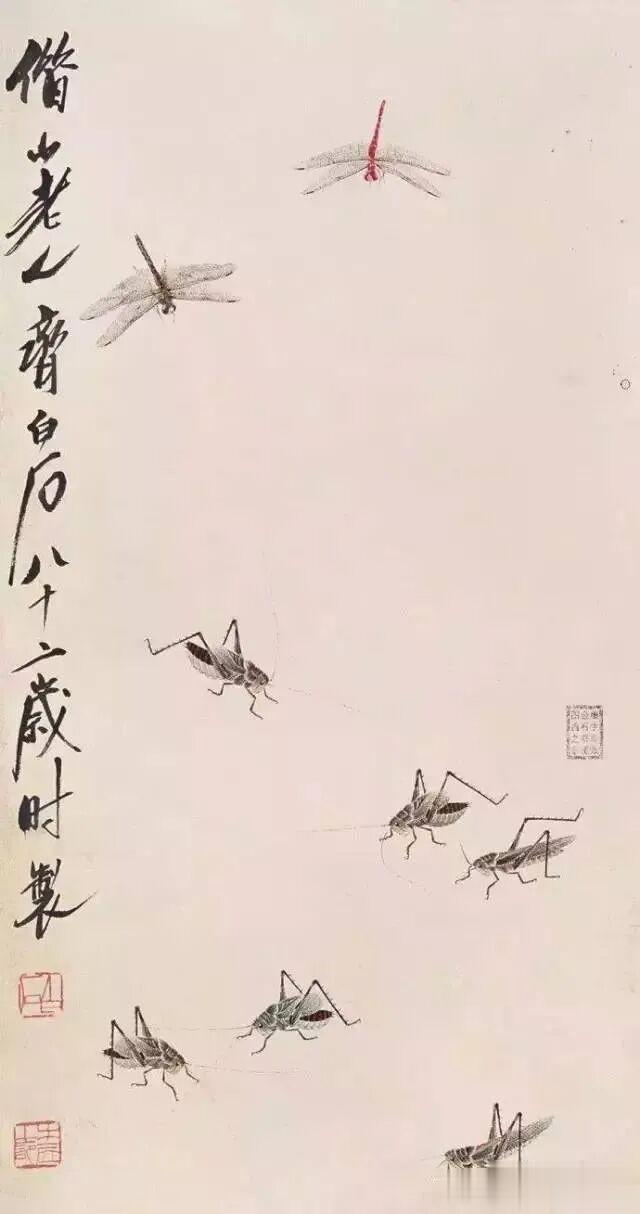 借山老人齊白石八十二歲时製